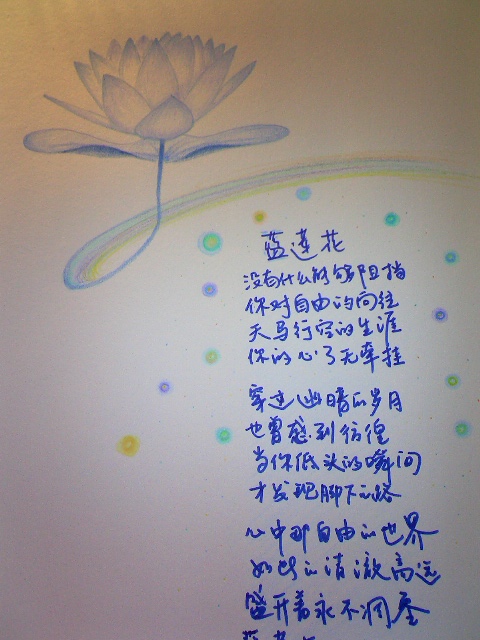 蓝莲花
没有什么能够阻挡
你对自由的向往
天马行空的生涯
你的心了无牵挂
穿过幽暗的岁月
也曾感到彷徨
当你低头的瞬间
才发现脚下的路
心中那自由的世界
如此的清澈高远
盛开着永不凋零